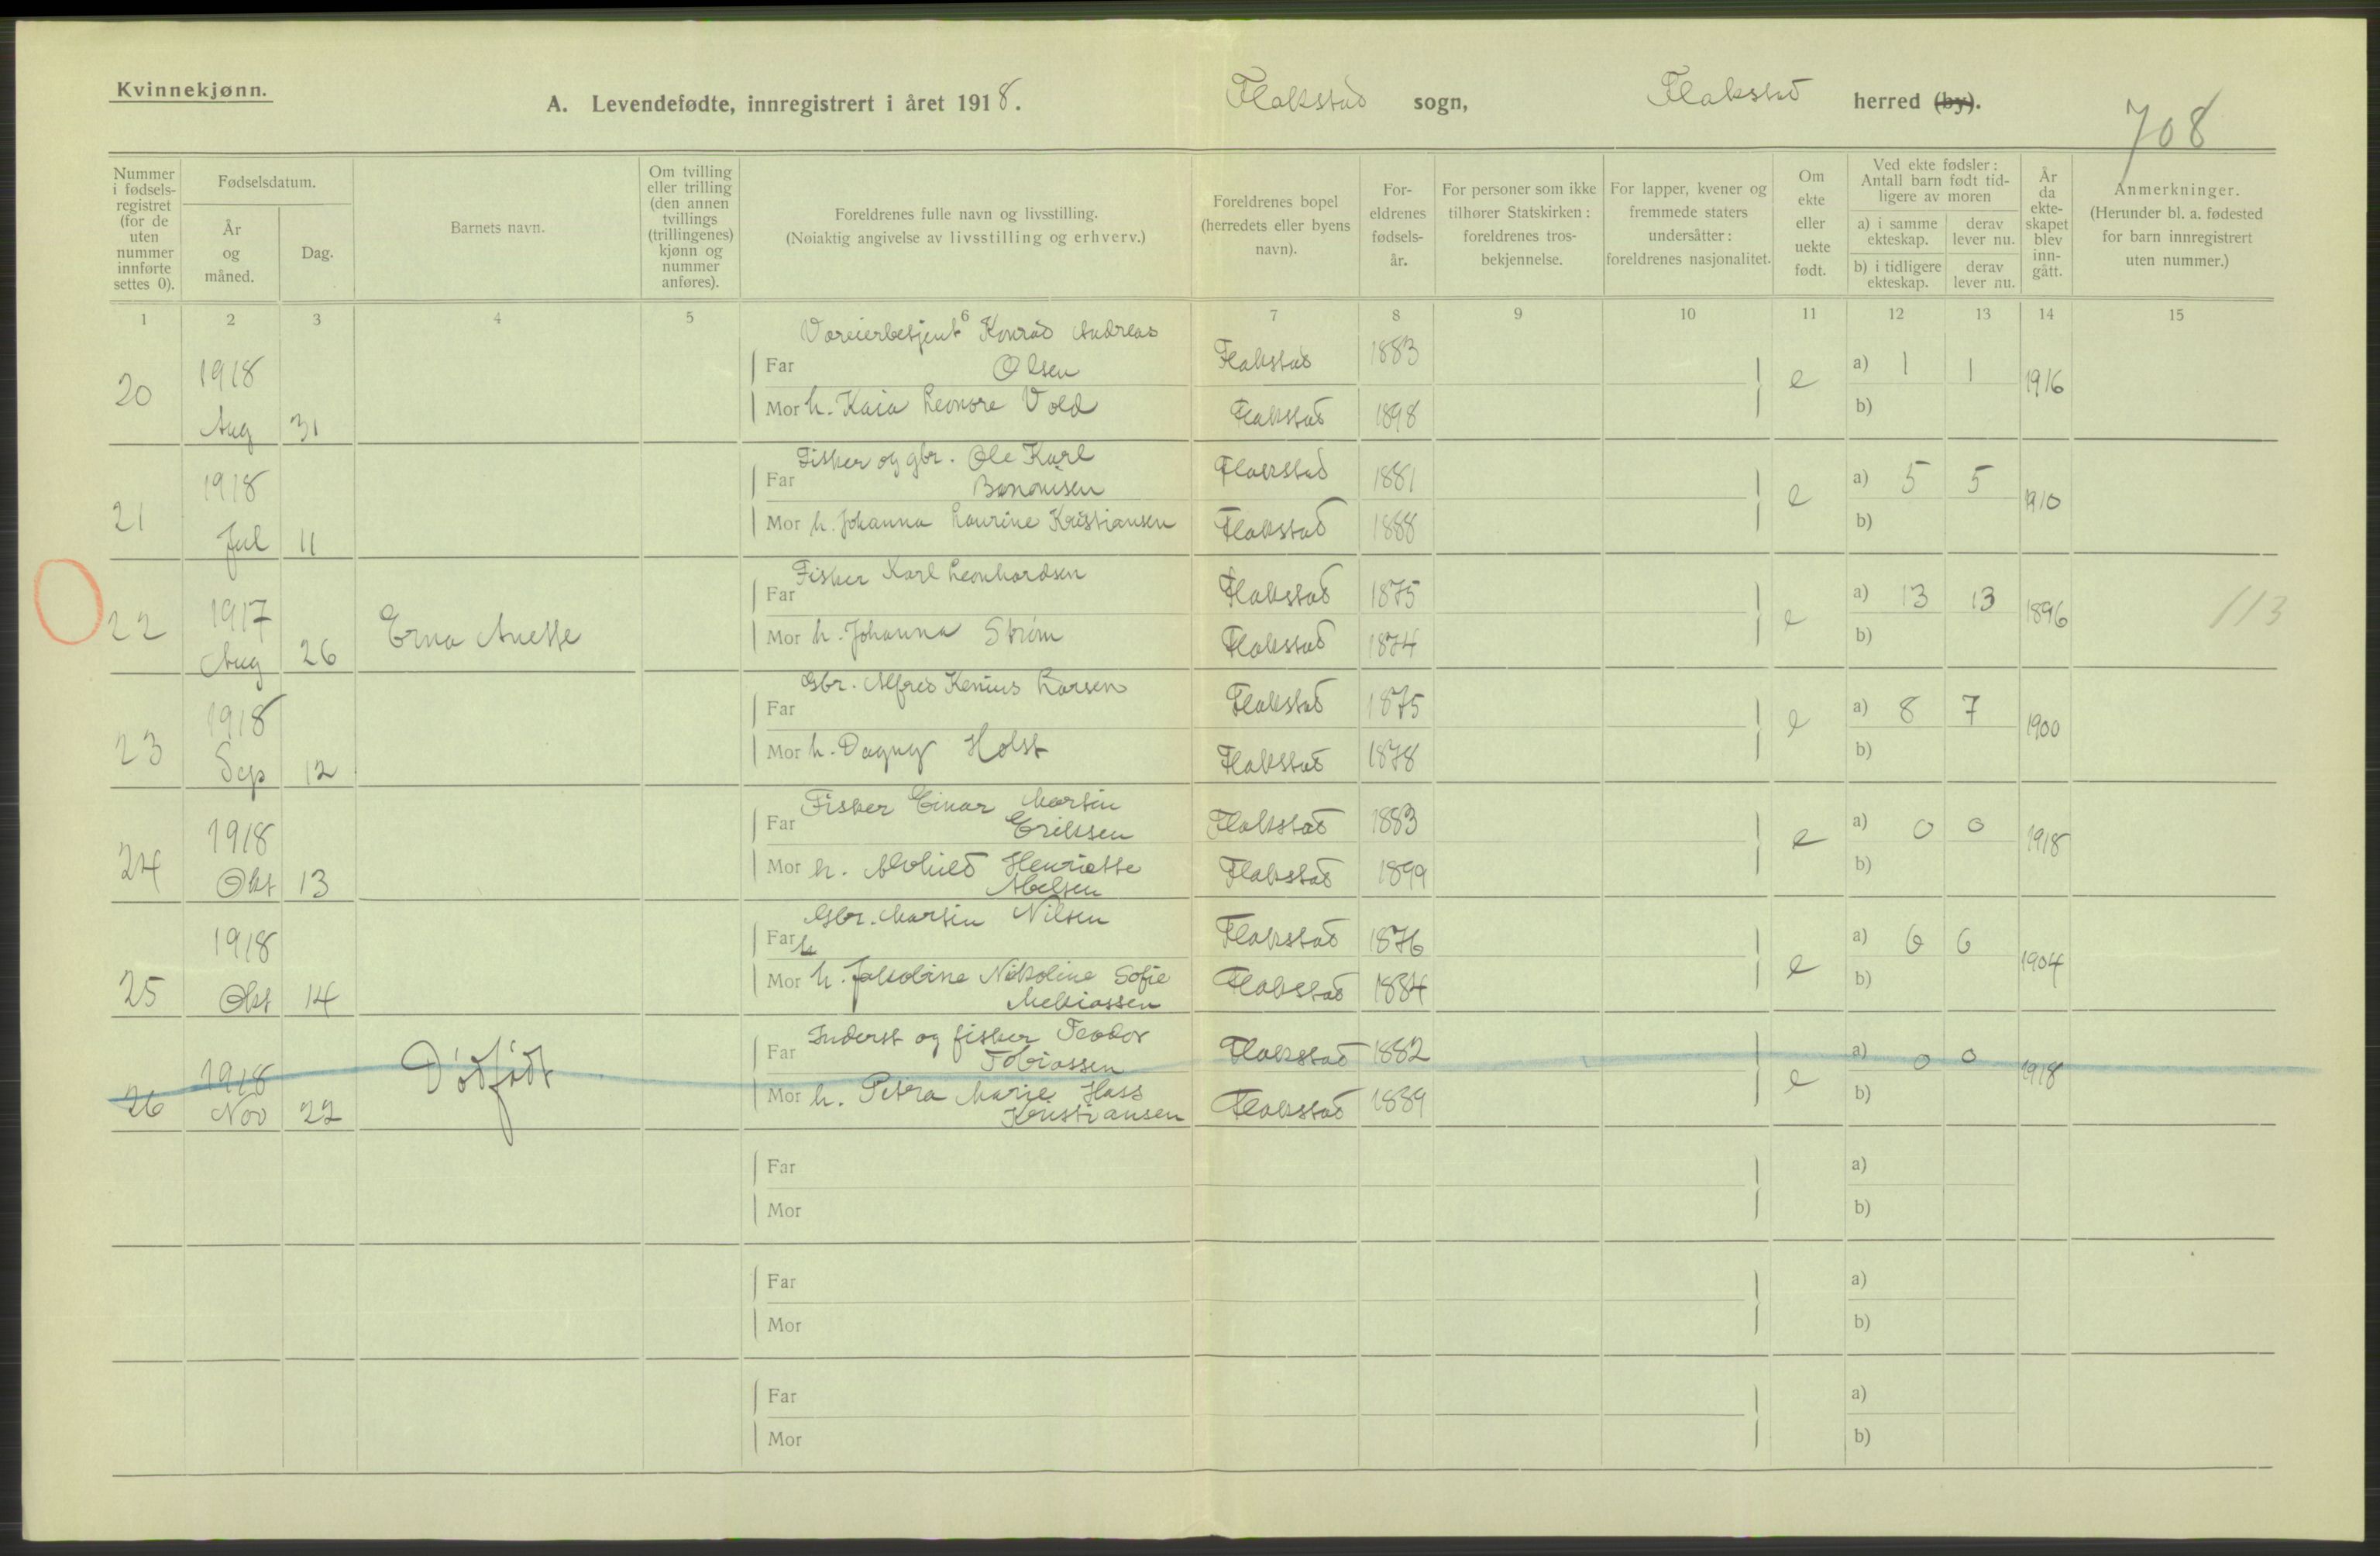 Kvinnekjønn.
A. Levendefødte, innregistrert i året 1918. Flakstad sogn, Flakstad herred (by).
708
Nummer i fødsels-registret (for de uten nummer innførte settes 0).
Fødselsdatum.
År og måned.
Dag.
Barnets navn.
Om tvilling eller trilling (den annen tvillings (trillingenes) kjønn og nummer anføres).
Foreldrenes fulle navn og livsstilling.
(Nøiaktig angivelse av livsstilling og erhverv.)
Foreldrenes bopel (herredets eller byens navn).
For-eldrenes fødsels-år.
For personer som ikke tilhører Statskirken: foreldrenes tros-bekjennelse.
For lapper, kvener og fremmede staters undersåtter: foreldrenes nasjonalitet.
Om ekte eller uekte født.
Ved ekte fødsler: Antall barn født tid-ligere av moren
a) i samme ekteskap.
derav lever nu.
b) i tidligere ekteskap.
derav lever nu.
År da ekte-skapet blev inn-gått.
Anmerkninger.
(Herunder bl. a. fødested for barn innregistrert uten nummer.)
1 2 3 4 5 6 7 8 9 10 11 12 13 14 15
20 1918 Aug 31
Konrad Andreas
Far Olsen Flakstad 1883
Mor h. Kaia Leonore Vold Flakstad 1898
e a) 1 1 1916
b)
21 1918 Jul 11
Fisker og gbr. Ole Karl
Far Flakstad 1881
Mor h. Johanna Laurine Kristiansen Flakstad 1888
e a) 5 5 1910
b)
22 1917 Aug 26 Erna Anette
Fisker Karl Leonhardsen
Far Flakstad 1875
Mor h. Johanna Strøm Flakstad 1874
e a) 13 13 1896 113
b)
23 1918 Sep 12
Gbr. Alfred Larsen
Far Flakstad 1875
Mor h. Dagny Holst Flakstad 1878
e a) 8 7 1900
b)
24 1918 Okt 13
Fisker Einar Martin
Far Eriksen Flakstad 1883
Mor h. Henriette Flakstad 1899
Abelsen
e a) 0 0 1918
b)
25 1918 Okt 14
Gbr. Martin Nilsen
Far h Flakstad 1876
Mor h. Jakobine Nikoline Sofie Flakstad 1884
Meliassen
e a) 6 6 1904
b)
26 1918 Nov 22 Dødfødt
Inderst og fisker Teodor
Far Tobiassen Flakstad 1882
Mor h. Petra Marie Hass Flakstad 1889
Kristiansen
e a) 0 0 1918
b)
Far a)
Mor b)
Far a)
Mor b)
Far a)
Mor b)